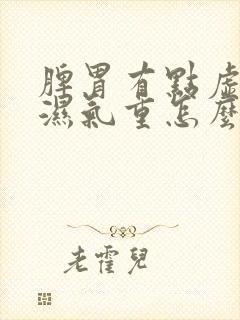 脾胃有點虛
濕氣重怎麼
老霍兒